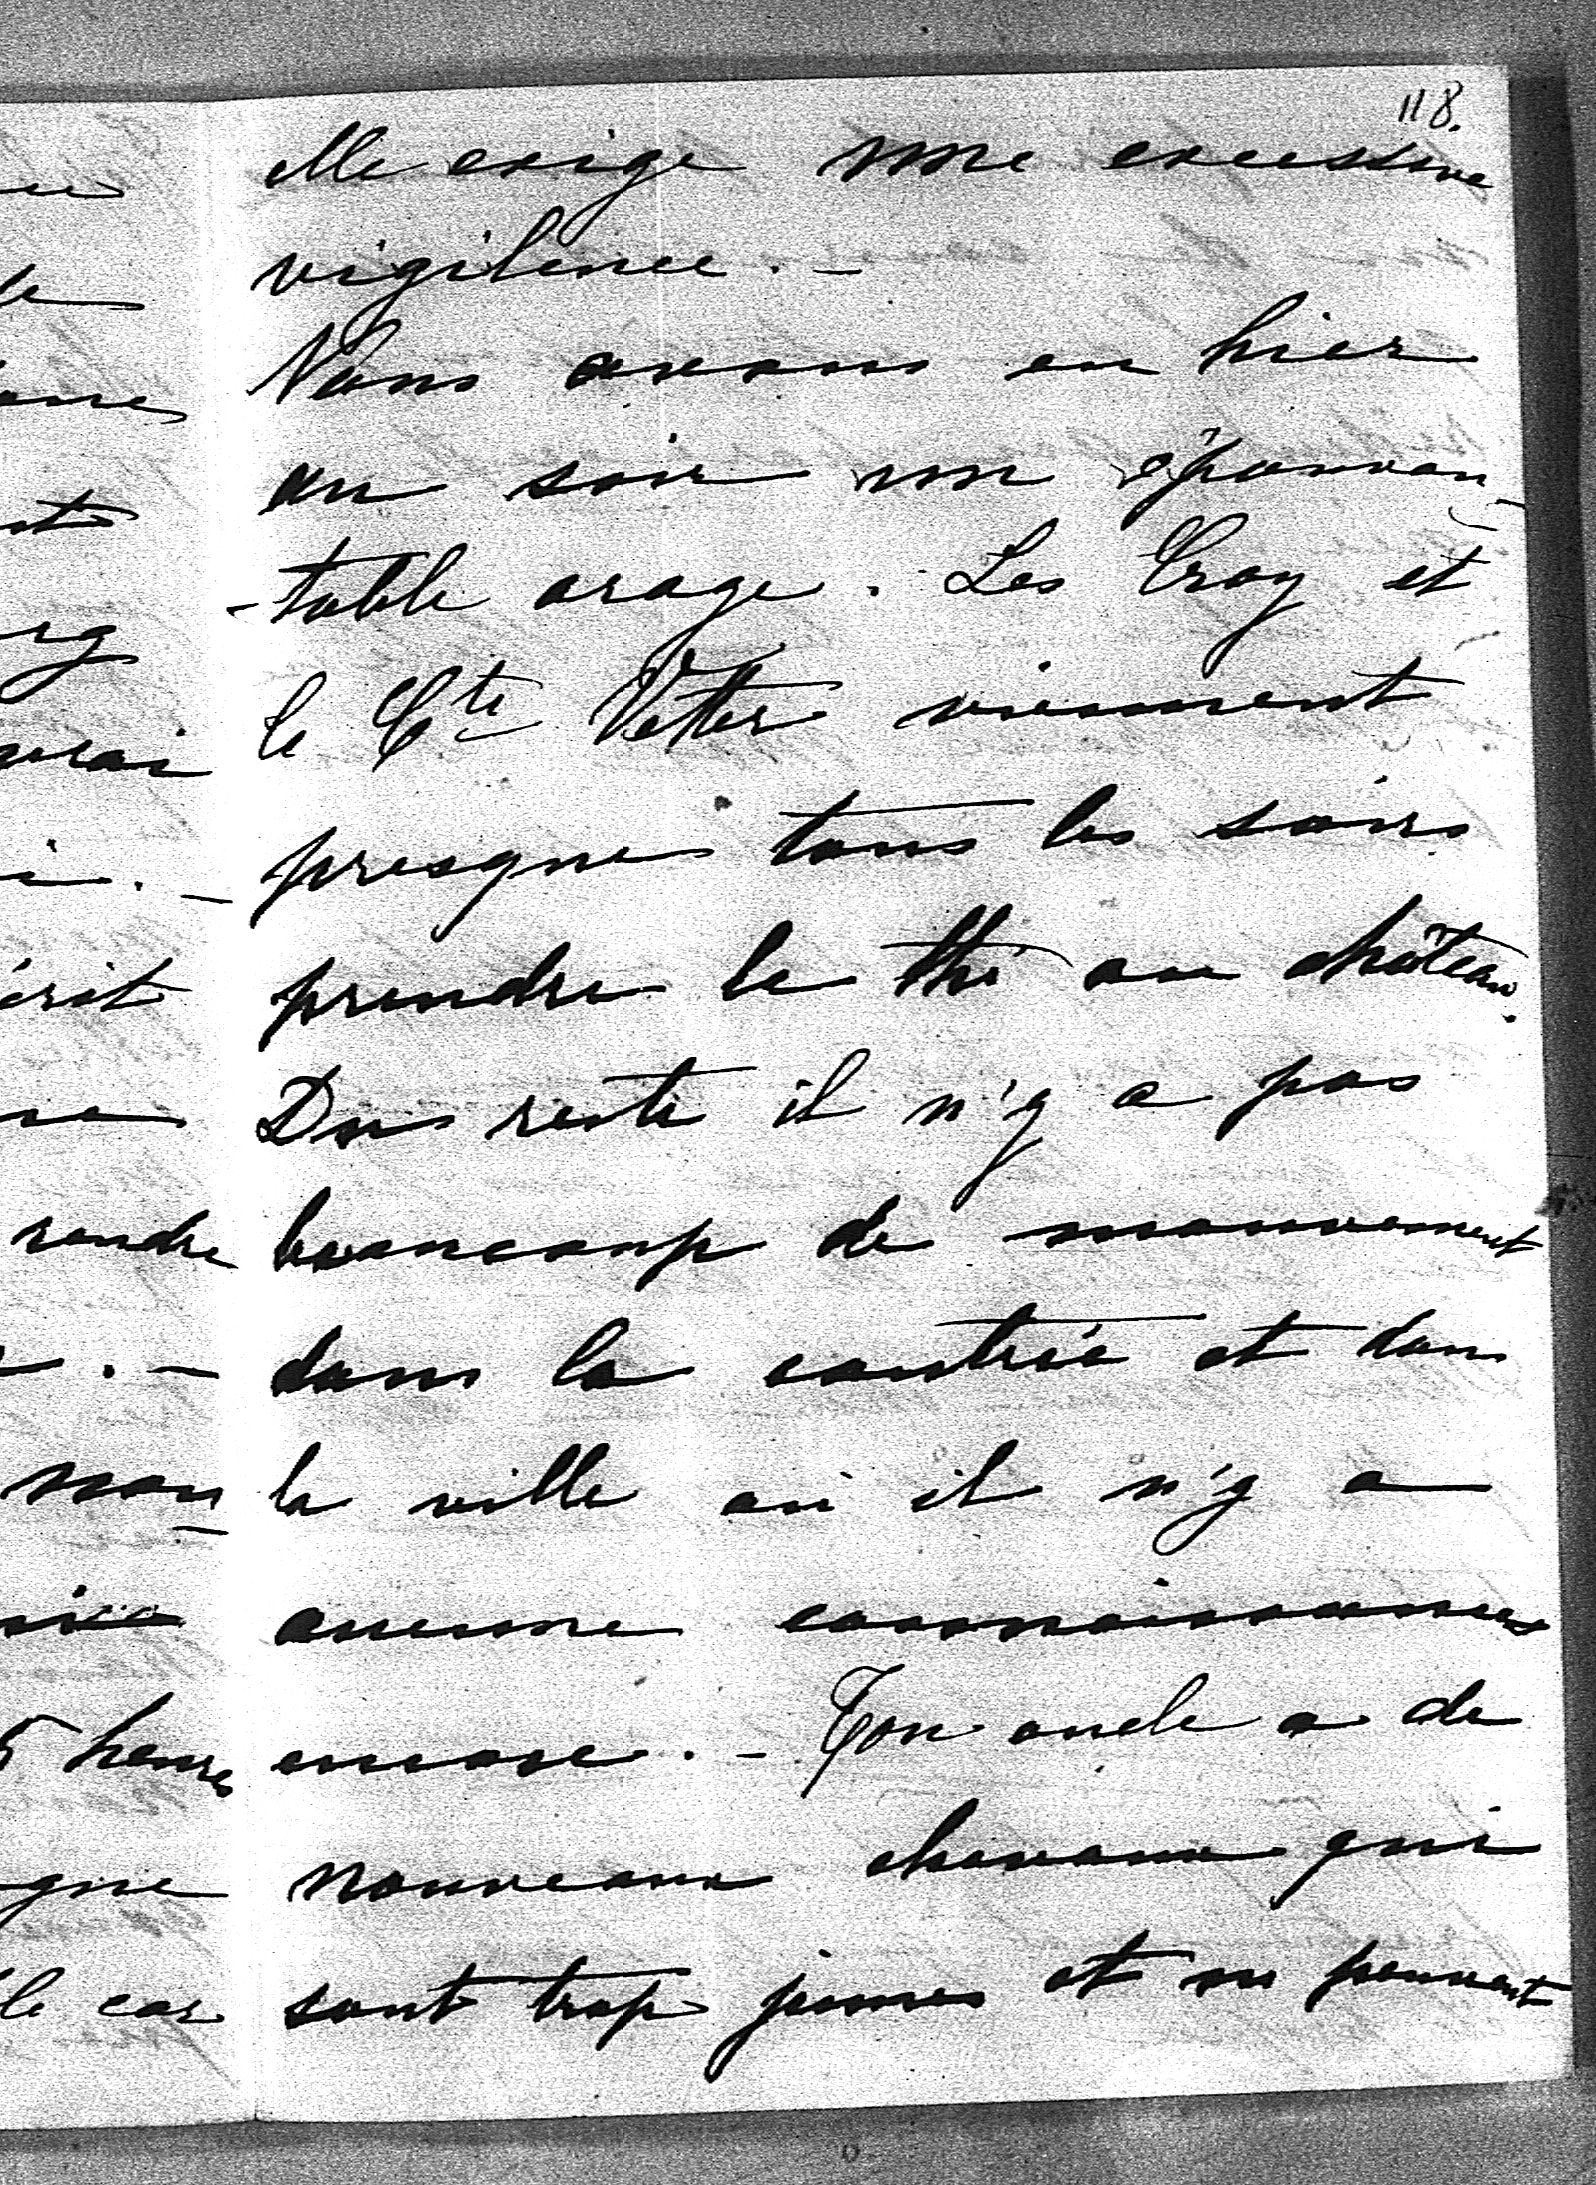 118.
elle exige une excessive
vigilence. –
Nous avons eu hier
au soir un épouvan-
-table orage. Les Croy et
le Cte Vetter viennent
presque tous les soirs
prendre le thé au château.
Du reste il n'y a pas
beaucoup de mouvement
dans la contrée et dans
la ville où il n'y a
aucune connaissances
encore. – Ton oncle a de
nouveaux chevaux qui
sont trop jeunes et ne peuvent
rendre
5 heures
le car